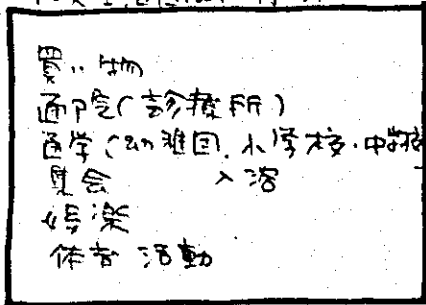 買い物
通院(診療所)
通学(幼稚园、小学校・中学校
集会 入浴
娯楽
体育活動